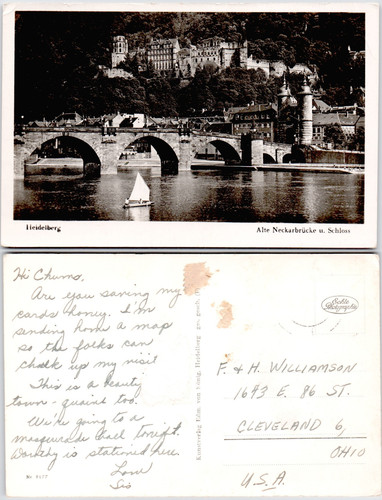 Heidelberg
Alte Neckarbrücke u. Schloss
Hi Chums.
Are you saving my
cards honey. I'm
sending home a map
so the folks can
chalk up my visit
This is a beauty
town - quaint too.
We're going to a
masquerade ball tonight.
Dorothy is stationed here.
Love
Sis
Echte
Photographie
F. & H. WILLIAMSON
1693 E. 86 ST.
CLEVELAND 6,
OHIO
U.S.A.
Kunstverlag Edm. von König, Heidelberg
ges. gesch.